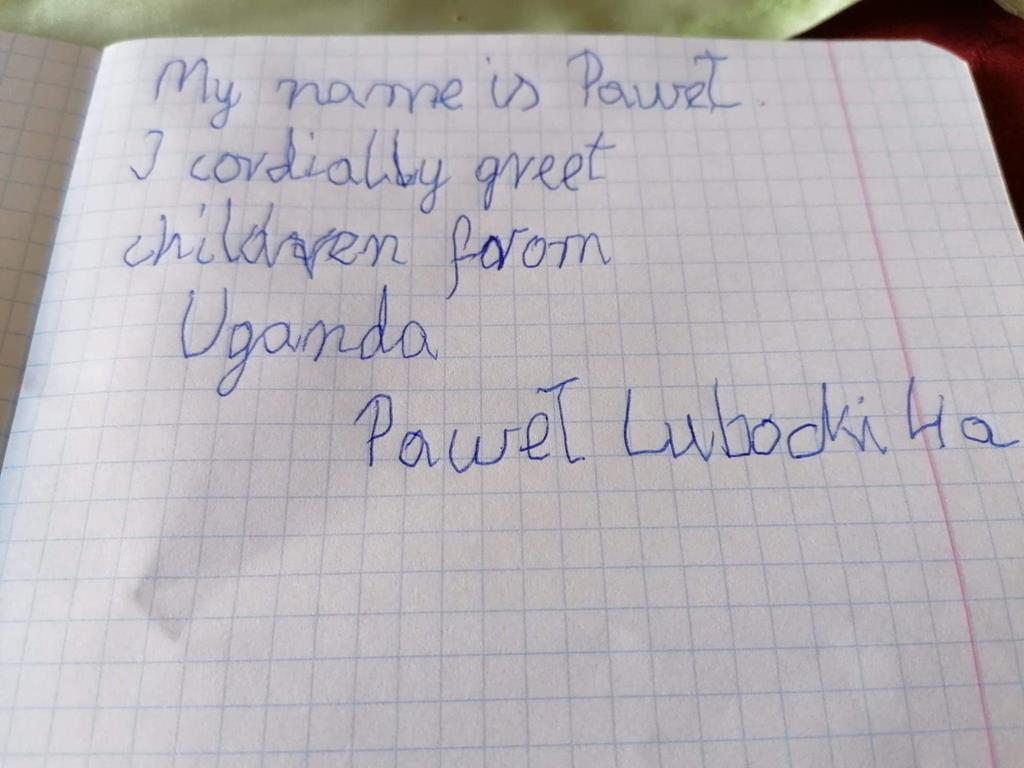 My name is Paweł.
I cordially greet
children from
Uganda
Paweł Lubocki 4a